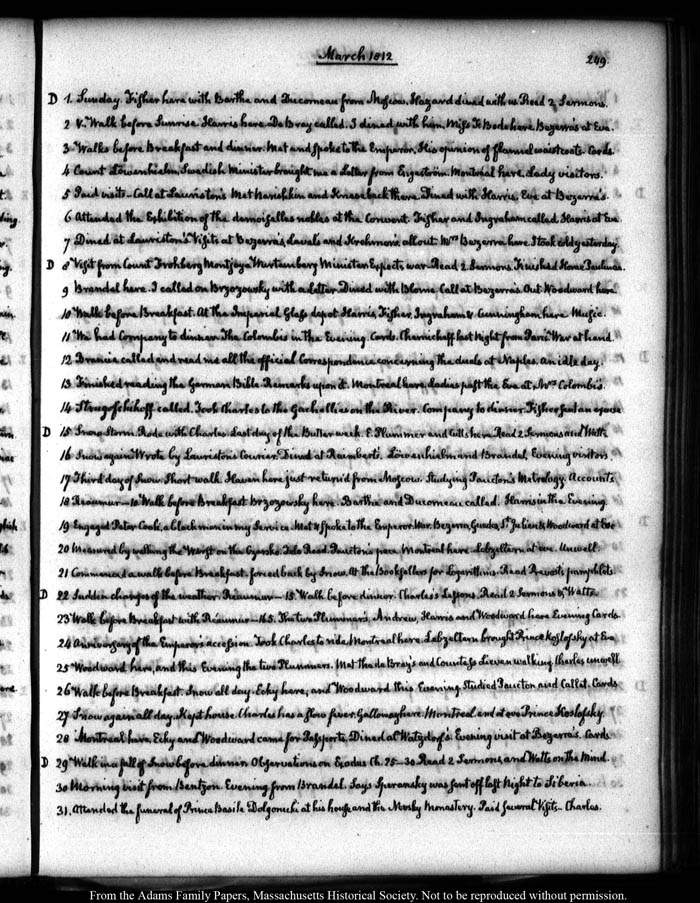 March 1812
249
D 1. Sunday. Fisher here with Barthe and Ducorneau from Moscow. Hazard dined with us. Read 2 Sermons.
2 V. Walk before Sunrise. Harris here. De Bray called. I dined with him. Miss Bode here. Bezerra's at Eve.
3 Walks before Breakfast and dinner. Met and spoke to the Emperor. His opinion of flannel waistcoats. Cards.
4 Count Löwenhielm, Swedish Minister brought me a Letter from Engeström. Montreal here. Lady visitors.
5 Paid visits—Call at Lauriston's. Met Narishkin and Kriseback there. Dined with Harris. Eve at Bezerra's.
6 Attended the Exhibition of the demoiselles nobles at the Convent. Fisher and Ingraham called. Harris at Eve.
7 Dined at Lauriston's. Visits at Bezerra's, Laval's and Krehmer's, all out. Mrs Bezerra here. I took cold yesterday.
D 8 Visit from Count Frohberg Montjoye Wurtemberg Minister Expects war. Read 2 Sermons. Finished Horae Paulinae.
9 Brandel here. I called on Brzozowsky with a letter. Dined with Blome. Call at Bezerra's. Out. Woodward here
10 Walk before Breakfast. At the Imperial Glass depot. Harris, Fisher, Ingraham & Cunningham, here. Music.
11 We had Company to dinner. The Colombi's in the Evening. Cards. Chernicheff last Night from Paris. War at hand.
12 Brancia called and read me all the official Correspondence concerning the duels at Naples. An idle day.
13 Finished reading the German Bible. Remarks upon it. Montreal here. Ladies past the Eve at Mrs Colombi's.
14 Strugofshikoff called. Took Charles to the Gachellies on the River. Company to dinner. Fisher sent an excuse
D 15 Snow Storm. Rode with Charles. Last day of the Butter week. E. Plummer and Cutts here. Read 2 Sermons and Watts
16 Snow again. Wrote by Lauriston's Courier. Dined at Raimbert's. Löwenhielm and Brandel, Evening visitors.
17 Third day of Snow. Short walk. Harris here just return'd from Moscow. Studying Paucton's Metrology. Accounts
18 Reaumur—10. Walk before Breakfast Brzozowsky here. Barthe and Ducorneau called. Harris in the Evening.
19 Engaged Peter Cook, a black man in my Service. Met & spoke to the Emperor. War. Bezerra, Guedes, St. Julien & Woodward at Eve
20 Measured by walking the Werst on the Ozerki. Read Paucton's pace. Montreal here. Lebzeltern at eve. Unwell.
21 Commenced a walk before Breakfast, forced back by Snow. At the Booksellers for Logarithms. Read Prevost's pamphlets.
D 22 Sudden changes of the weather. Reaumur—15. Walk before dinner. Charles's Lessons. Read 2 Sermons & Watts.
23 Walk before Breakfast with Réaumur—16.5. The two Plummers, Andrew, Harris and Woodward here Evening Cards.
24 Anniversary of the Emperor's accession. Took Charles to ride. Montreal here. Lebzeltern brought Prince Koslofsky at Eve
25 Woodward here, and this Evening the two Plummers. Met the de Bray's and Countess Lieven walking. Charles unwell
26 Walk before Breakfast. Snow all day. Ecky here, and Woodward this Evening. Studied Paucton and Callet. Cards
27 Snow again all day. Kept house. Charles has a slow fever. Galloway here. Montreal and at eve Prince Koslofsky.
28 Montreal here. Ecky and Woodward came for Passports. Dined at Watzdorf's. Evening visit at Bezerra's. Cards
D 29 Walk in a fall of Snow before dinner. Observations on Exodus Ch. 25—30. Read 2 Sermons and Watts on the Mind.
30 Morning visit from Bentzon. Evening from Brandel. Says Speransky was sent off last Night to Siberia.
31. Attended the funeral of Prince Basile Dolgorucki at his house and the Nevsky Monastery. Paid several Visits.—Charles.
From the Adams Family Papers, Massachusetts Historical Society. Not to be reproduced without permission.